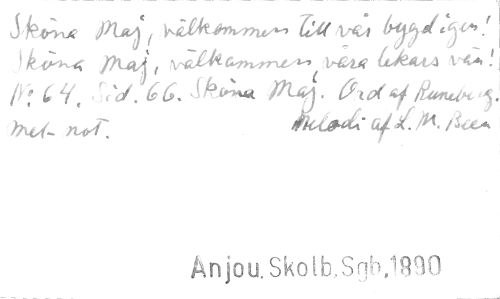 Sköna Maj, välkommen till vår bygd igen!
Sköna Maj, välkommen våra lekars vän!
No 64. Sid. 66. Sköna Maj. Ord af Runeberg.
Mel-not. Melodi af L. M. Been
Anjou, Skolb, Sgb, 1890